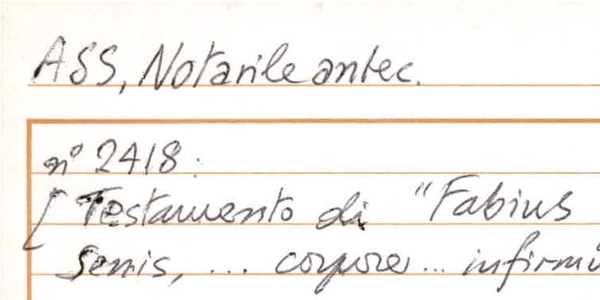 ASS, Notarile antec.
n° 2418.
[ Testamento di "Fabius
Senis, ... corpore ... infirmu